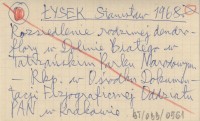 ŁYSEK Stanisław 1968:
Rozsiedlenie rodzimej dendro-
flory w Dolinie Białego w
Tatrzańskim Parku Narodowym
– Rkp. w Ośrodku Dokumen-
tacji Fizjograficznej Oddziału
PAN w Krakowie.